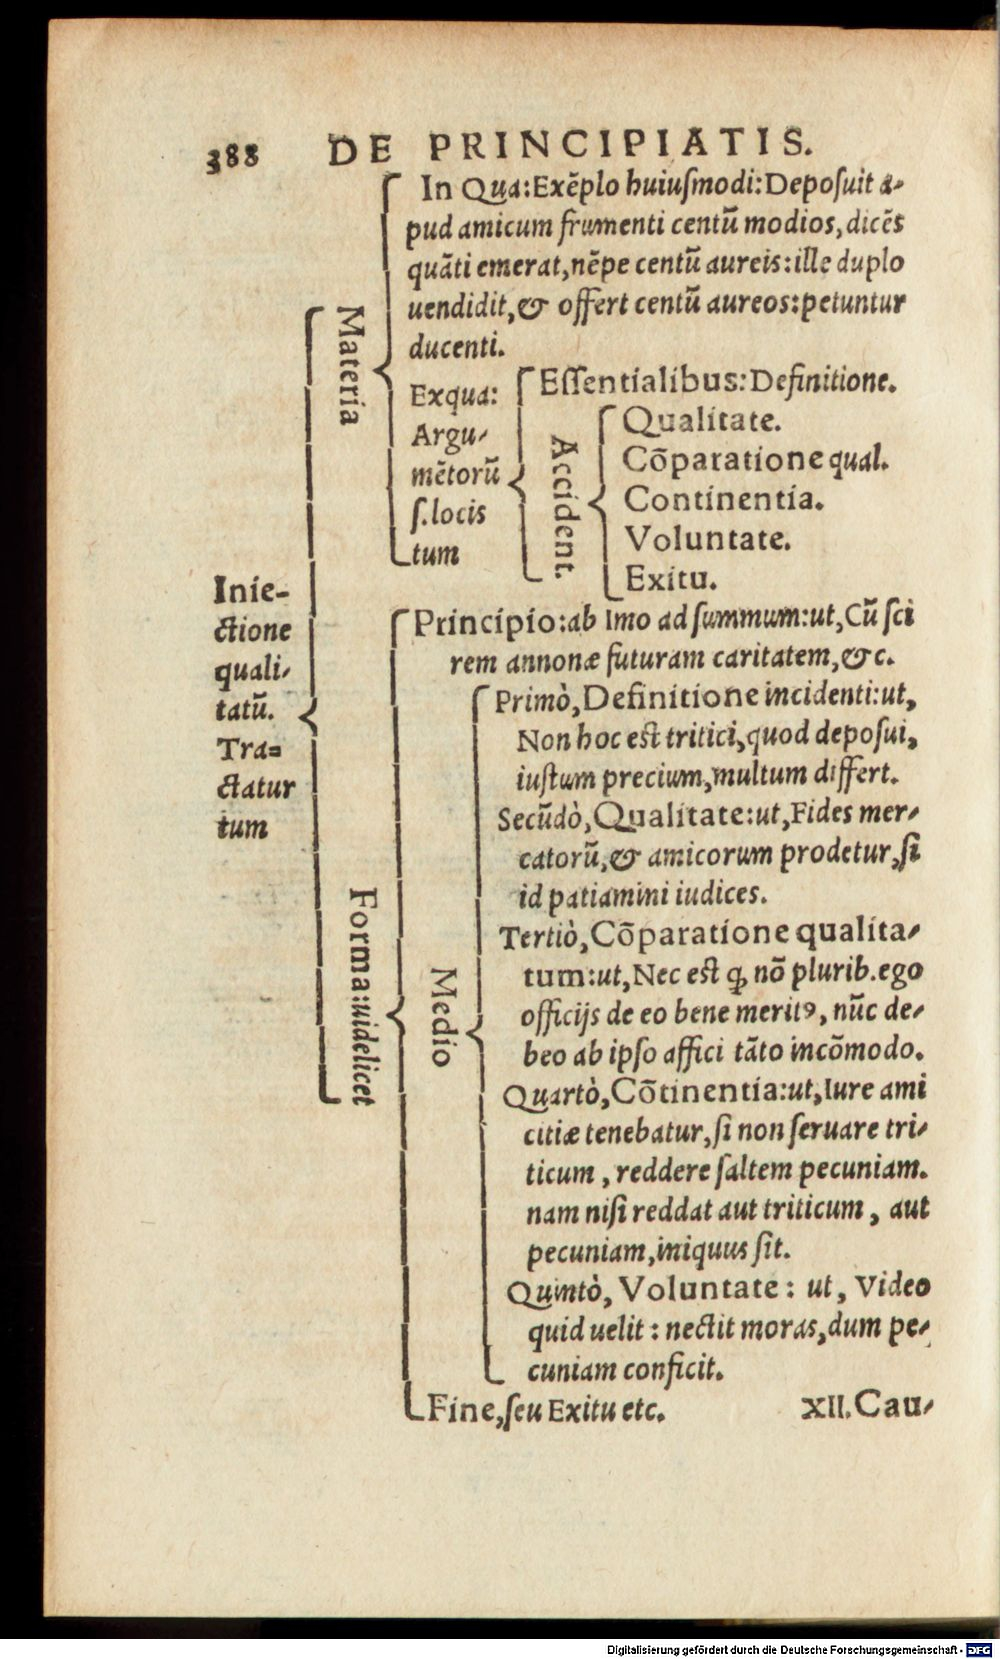 388 DE PRINCIPIATIS.
Inie-
ctione
quali-
tatū.
Tra=
ctatur
tum
Materia
In Qua: Exēplo huiuſmodi: Depoſuit a-
pud amicum frumenti centū modios, dicēs
quāti emerat, nēpe centū aureis: ille duplo
uendidit, & offert centū aureos: petuntur
ducenti.
Exqua:
Argu-
mētorū
ſ. locis
tum
Eſſentialibus: Definitione.
Accident.
Qualitate.
Cōparatione qual.
Continentia.
Voluntate.
Exitu.
Forma: uidelicet
Principio: ab Imo ad ſummum: ut, Cū ſci
rem annonæ futuram caritatem, &c.
Medio
Primò, Definitione incidenti: ut,
Non hoc est tritici, quod depoſui,
iuſtum precium, multum differt.
Secūdò, Qualitate: ut, Fides mer-
catorū, & amicorum prodetur, ſi
id patiamini iudices.
Tertiò, Cōparatione qualita-
tum: ut, Nec est ꝙ nō plurib. ego
officijs de eo bene meritꝰ, nūc de-
beo ab ipſo affici tāto incōmodo.
Quartò, Cōtinentia: ut, Iure ami
citiæ tenebatur, ſi non ſeruare tri-
ticum, reddere ſaltem pecuniam.
nam niſi reddat aut triticum, aut
pecuniam, iniquus ſit.
Quintò, Voluntate: ut, Video
quid uelit: nectit moras, dum pe-
cuniam conficit.
Fine, ſeu Exitu etc. XII. Cau-
Digitalisierung gefördert durch die Deutsche Forschungsgemeinschaft - DFG